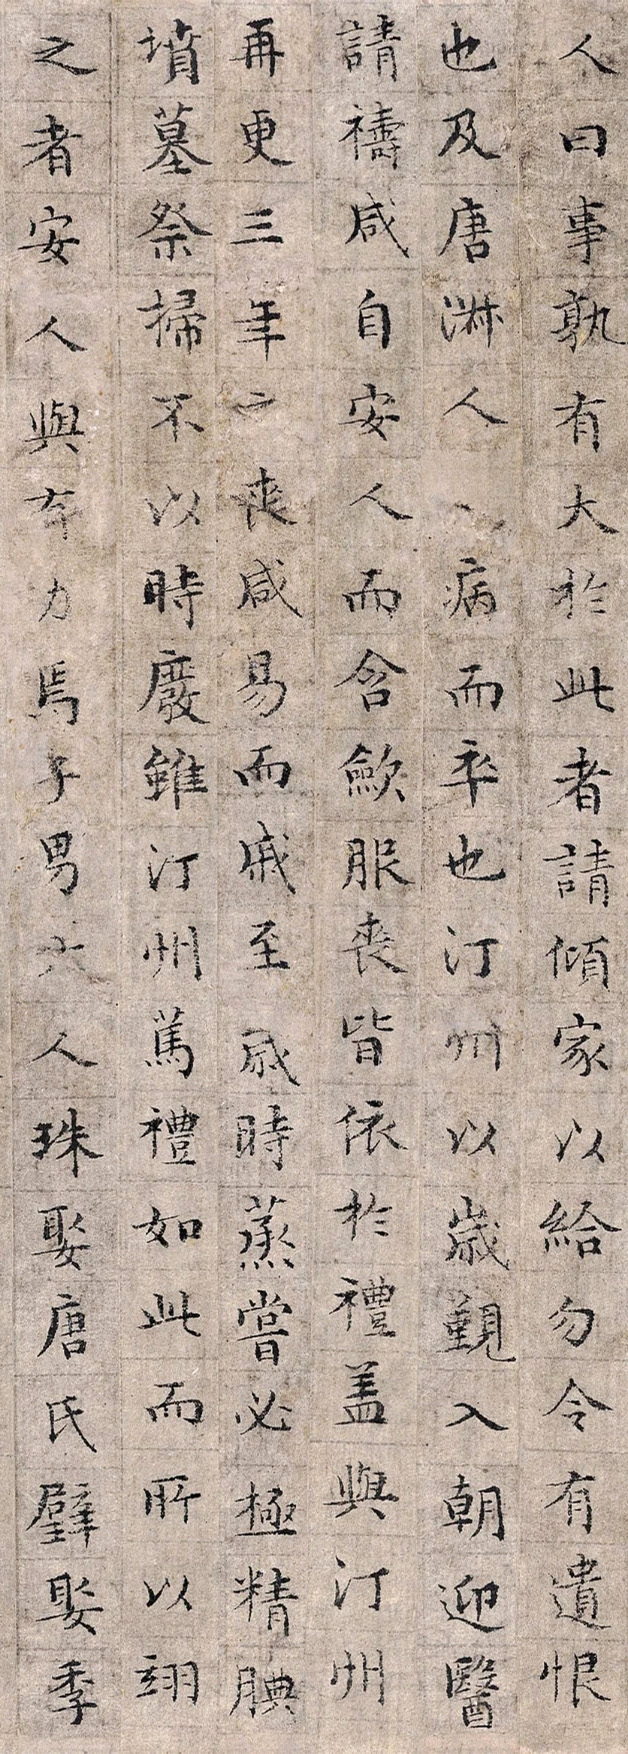 人曰事孰有大於此者請傾家以給勿令有遺恨
也及唐淑人之病而卒也汀州以歲覲入朝迎醫
請禱咸自安人而含歛服喪皆依於禮盖與汀州
再更三年之喪咸易而戚至歲時蒸嘗必極精腆
墳墓祭掃不以時廢雖汀州篤禮如此而所以翊
之者安人與有力焉子男六人珠娶唐氏璧娶季